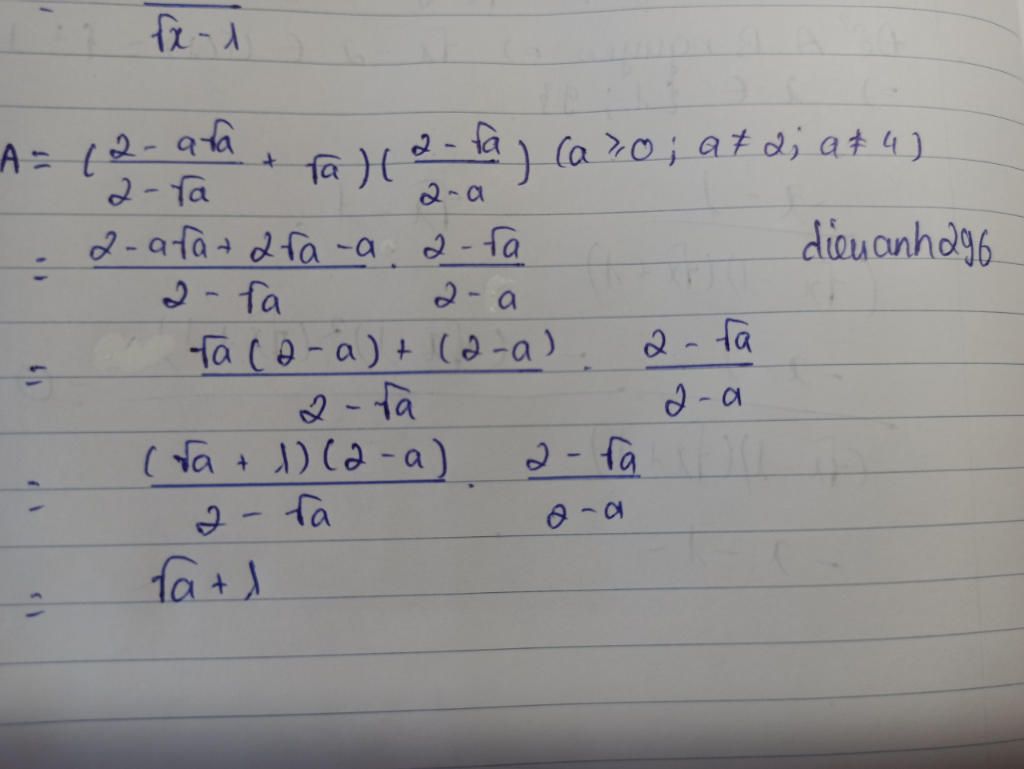 - √x - 1
A = ( (2 - a√a)/(2 - √a) + √a ) ( (2 - √a)/(2 - a) ) (a ≥ 0 ; a ≠ 2; a ≠ 4)
= (2 - a√a + 2√a - a)/(2 - √a) . (2 - √a)/(2 - a)
dieuanh296
= (√a (2 - a) + (2 - a))/(2 - √a) . (2 - √a)/(2 - a)
= ((√a + 1)(2 - a))/(2 - √a) . (2 - √a)/(2 - a)
= √a + 1